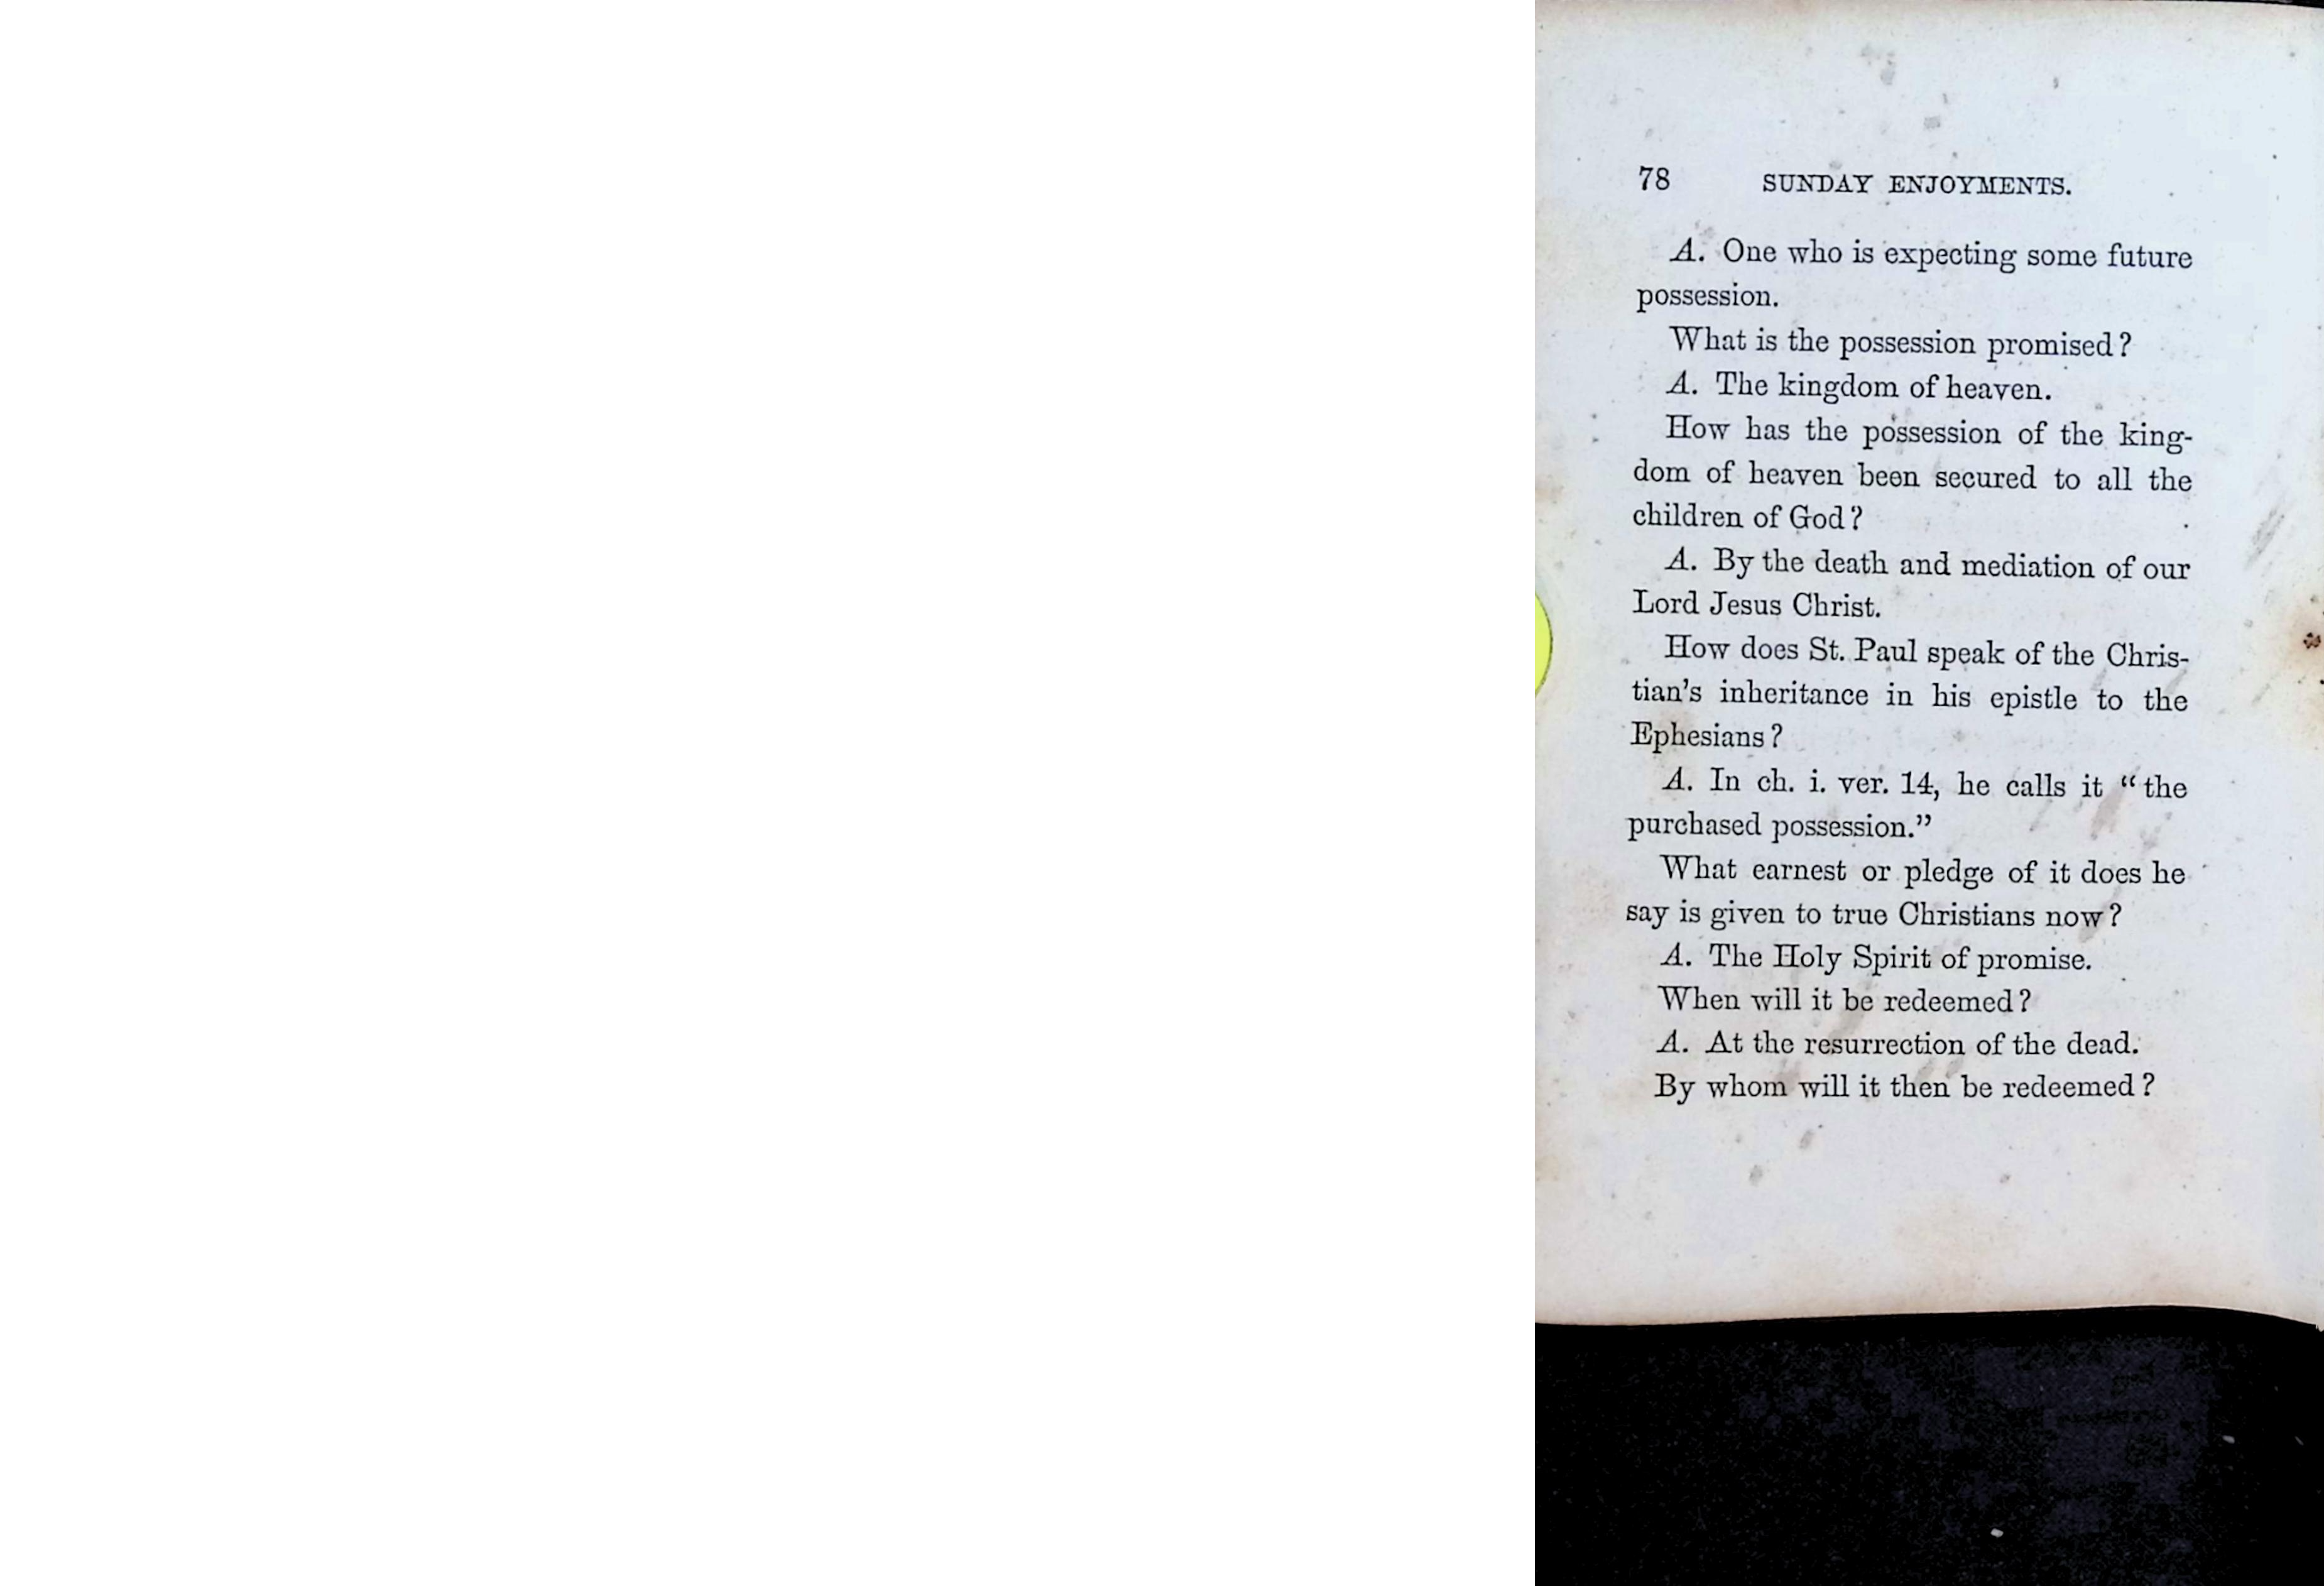 78 SUNDAY ENJOYMENTS.
A. One who is expecting some future
possession.
What is the possession promised?
A. The kingdom of heaven.
How has the possession of the king-
dom of heaven been secured to all the
children of God?
A. By the death and mediation of our
Lord Jesus Christ.
How does St. Paul speak of the Chris-
tian's inheritance in his epistle to the
Ephesians?
A. In ch. i. ver. 14, he calls it “the
purchased possession.”
What earnest or pledge of it does he
say is given to true Christians now?
A. The Holy Spirit of promise.
When will it be redeemed?
A. At the resurrection of the dead.
By whom will it then be redeemed?